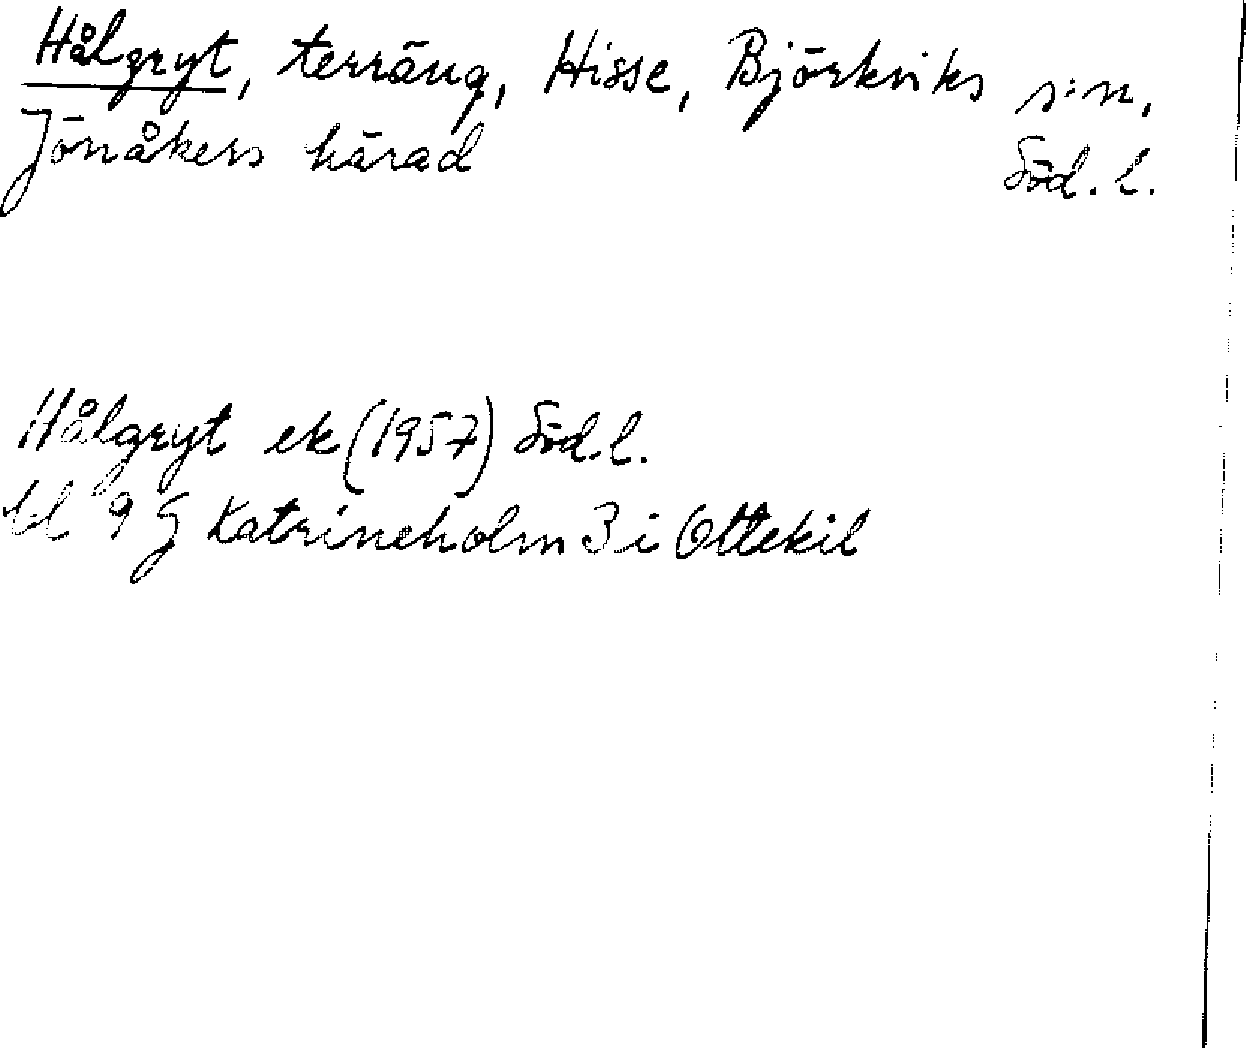 Hålgryt, terräng, Hisse, Björkviks s:n,
Jönåkers härad Söd. l.
Hålgryt ek (1957) Söd. l.
bl 9 G Katrineholm 3 i Ottekil